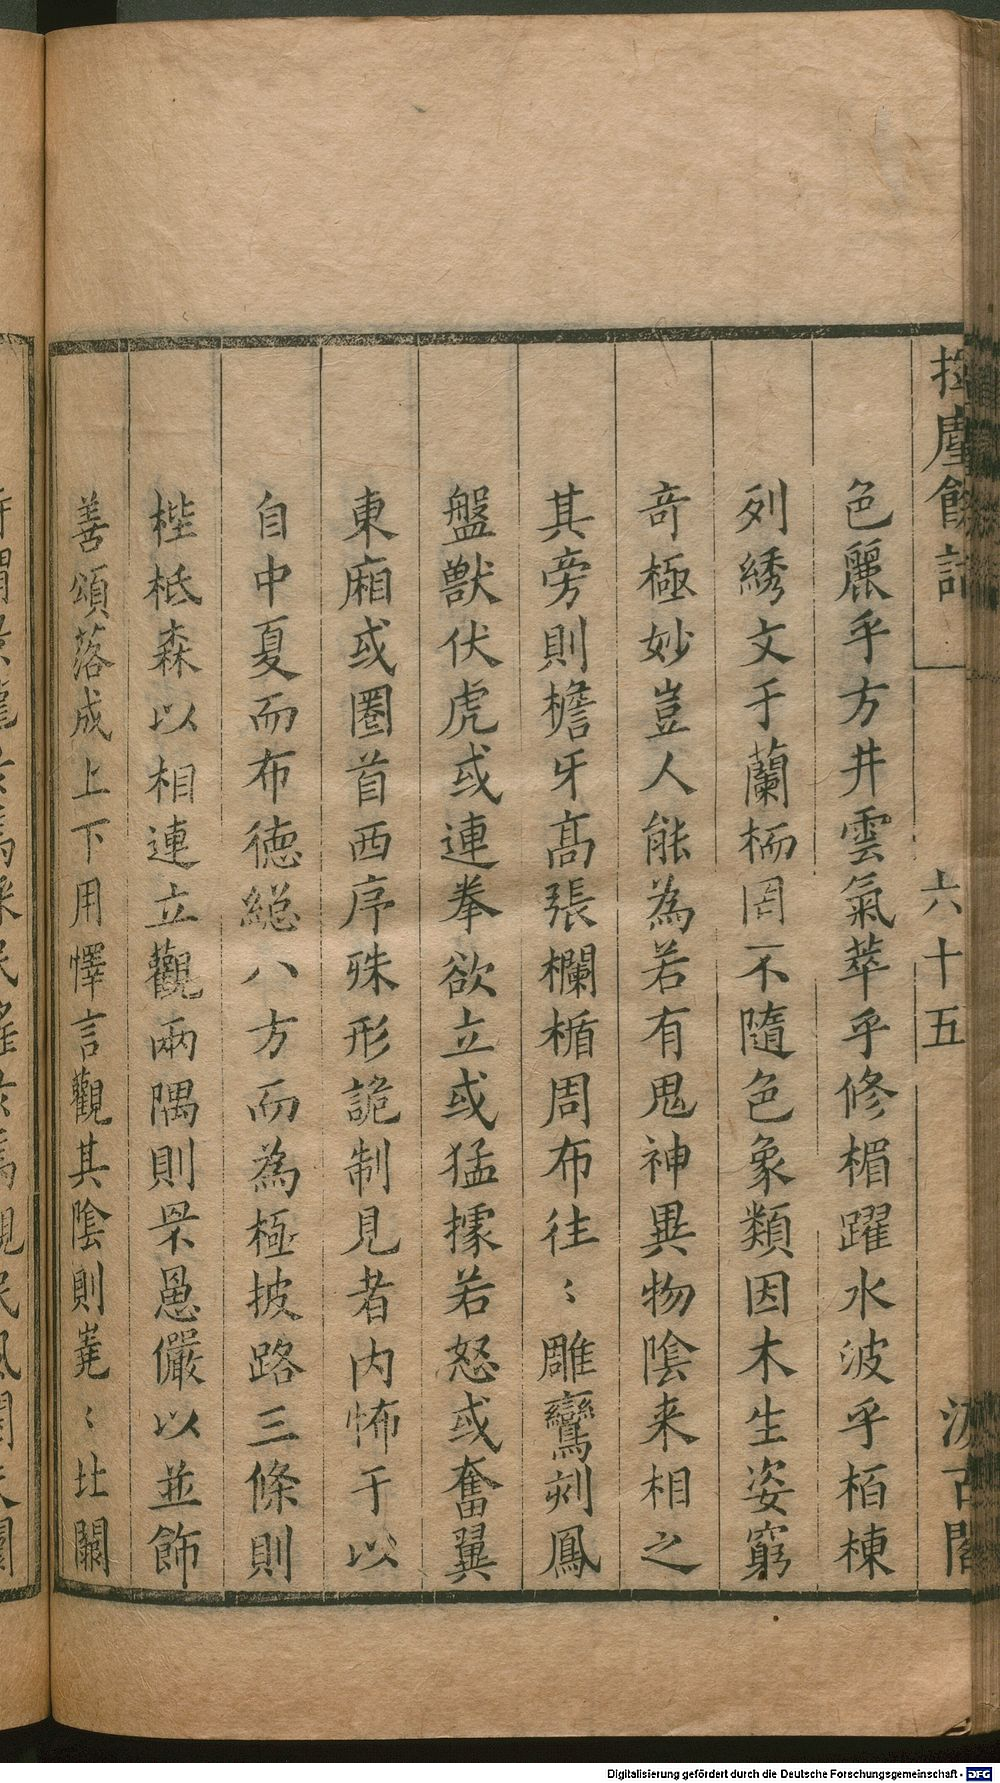 揮塵餘話
六十五
汲古閣
色麗乎方井雲氣萃乎修楣躍水波乎栢棟
列綉文于蘭栭罔不隨色象類因木生姿窮
竒極妙豈人能為若有鬼神異物陰来相之
其旁則檐牙髙張欄楯周布往〻雕鸞刻鳳
盤獸伏虎或連拳欲立或猛㩀若怒或奮翼
東廂或圈首西序殊形詭制見者内怖于以
自中夏而布德緫八方而為極披路三條則
梐柢森以相連立觀兩隅則罘罳儼以並飾
善頌落成上下用懌言觀其陰則嶤〻北闕
Digitalisierung gefördert durch die Deutsche Forschungsgemeinschaft - DFG